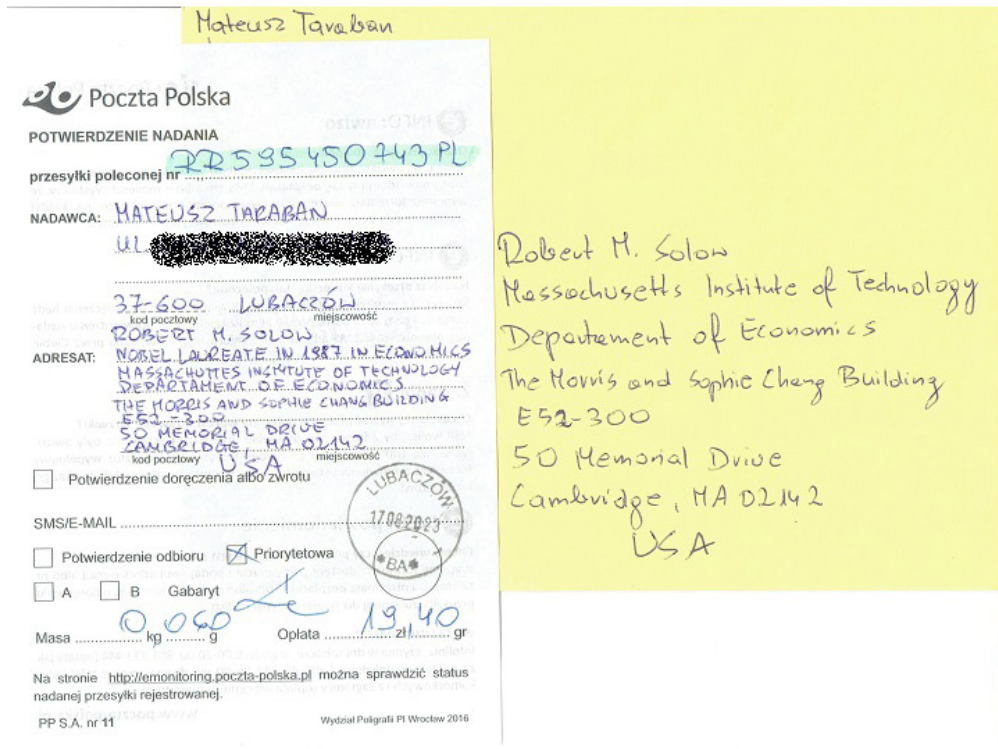 Mateusz Taraban
Poczta Polska
POTWIERDZENIE NADANIA
przesyłki poleconej nr RR595450743PL
NADAWCA: MATEUSZ TARABAN
UL.
37-600 LUBACZÓW
kod pocztowy miejscowość
ADRESAT: ROBERT M. SOLOW
NOBEL LAUREATE IN 1987 IN ECONOMICS
MASSACHUTTES INSTITUTE OF TECHNOLOGY
DEPARTAMENT OF ECONOMICS
THE MORRIS AND SOPHIE CHANG BUILDING
E52-300
50 MEMORIAL DRIVE
CAMBRIDGE, MA 02142
kod pocztowy miejscowość
USA
Potwierdzenie doręczenia albo zwrotu
SMS/E-MAIL
Potwierdzenie odbioru Priorytetowa
A B Gabaryt
Masa 0 kg 060 g Opłata 19 zł 40 gr
Na stronie http://emonitoring.poczta-polska.pl można sprawdzić status
nadanej przesyłki rejestrowanej.
PP S.A. nr 11 Wydział Poligrafii PI Wrocław 2016
LUBACZÓW
17.08.2023
*BA*
Robert M. Solow
Massachusetts Institute of Technology
Departament of Economics
The Morris and Sophie Chang Building
E52-300
50 Memorial Drive
Cambridge, MA 02142
USA